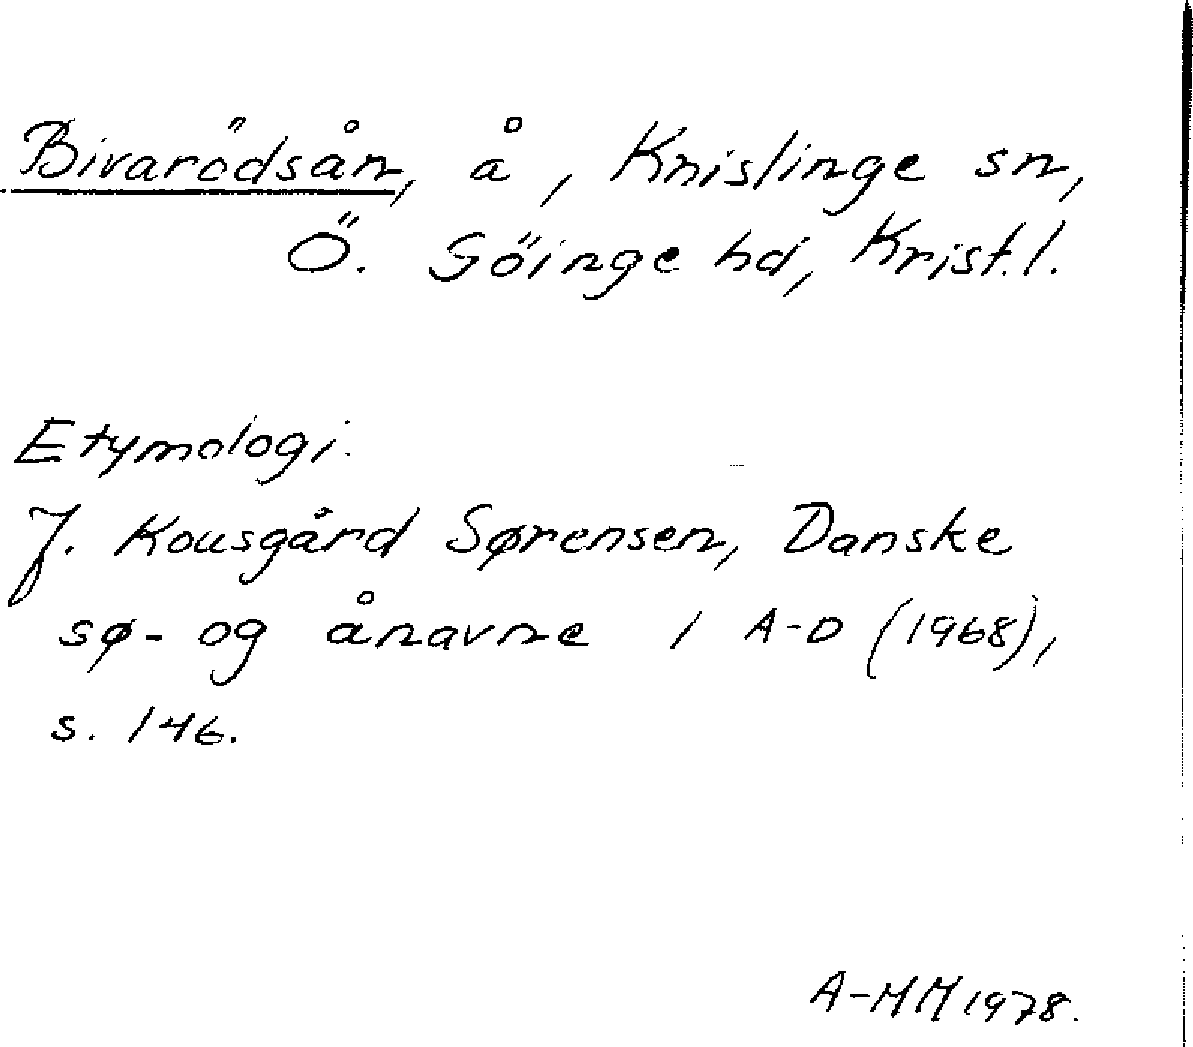 Bivarödsån, å, Knislinge sn,
Ö. Göinge hd, Krist.l.
Etymologi.
J. Kousgård Sørensen, Danske
sø- og ånavne 1 A-D (1968),
s. 146.
A-MM 1978.